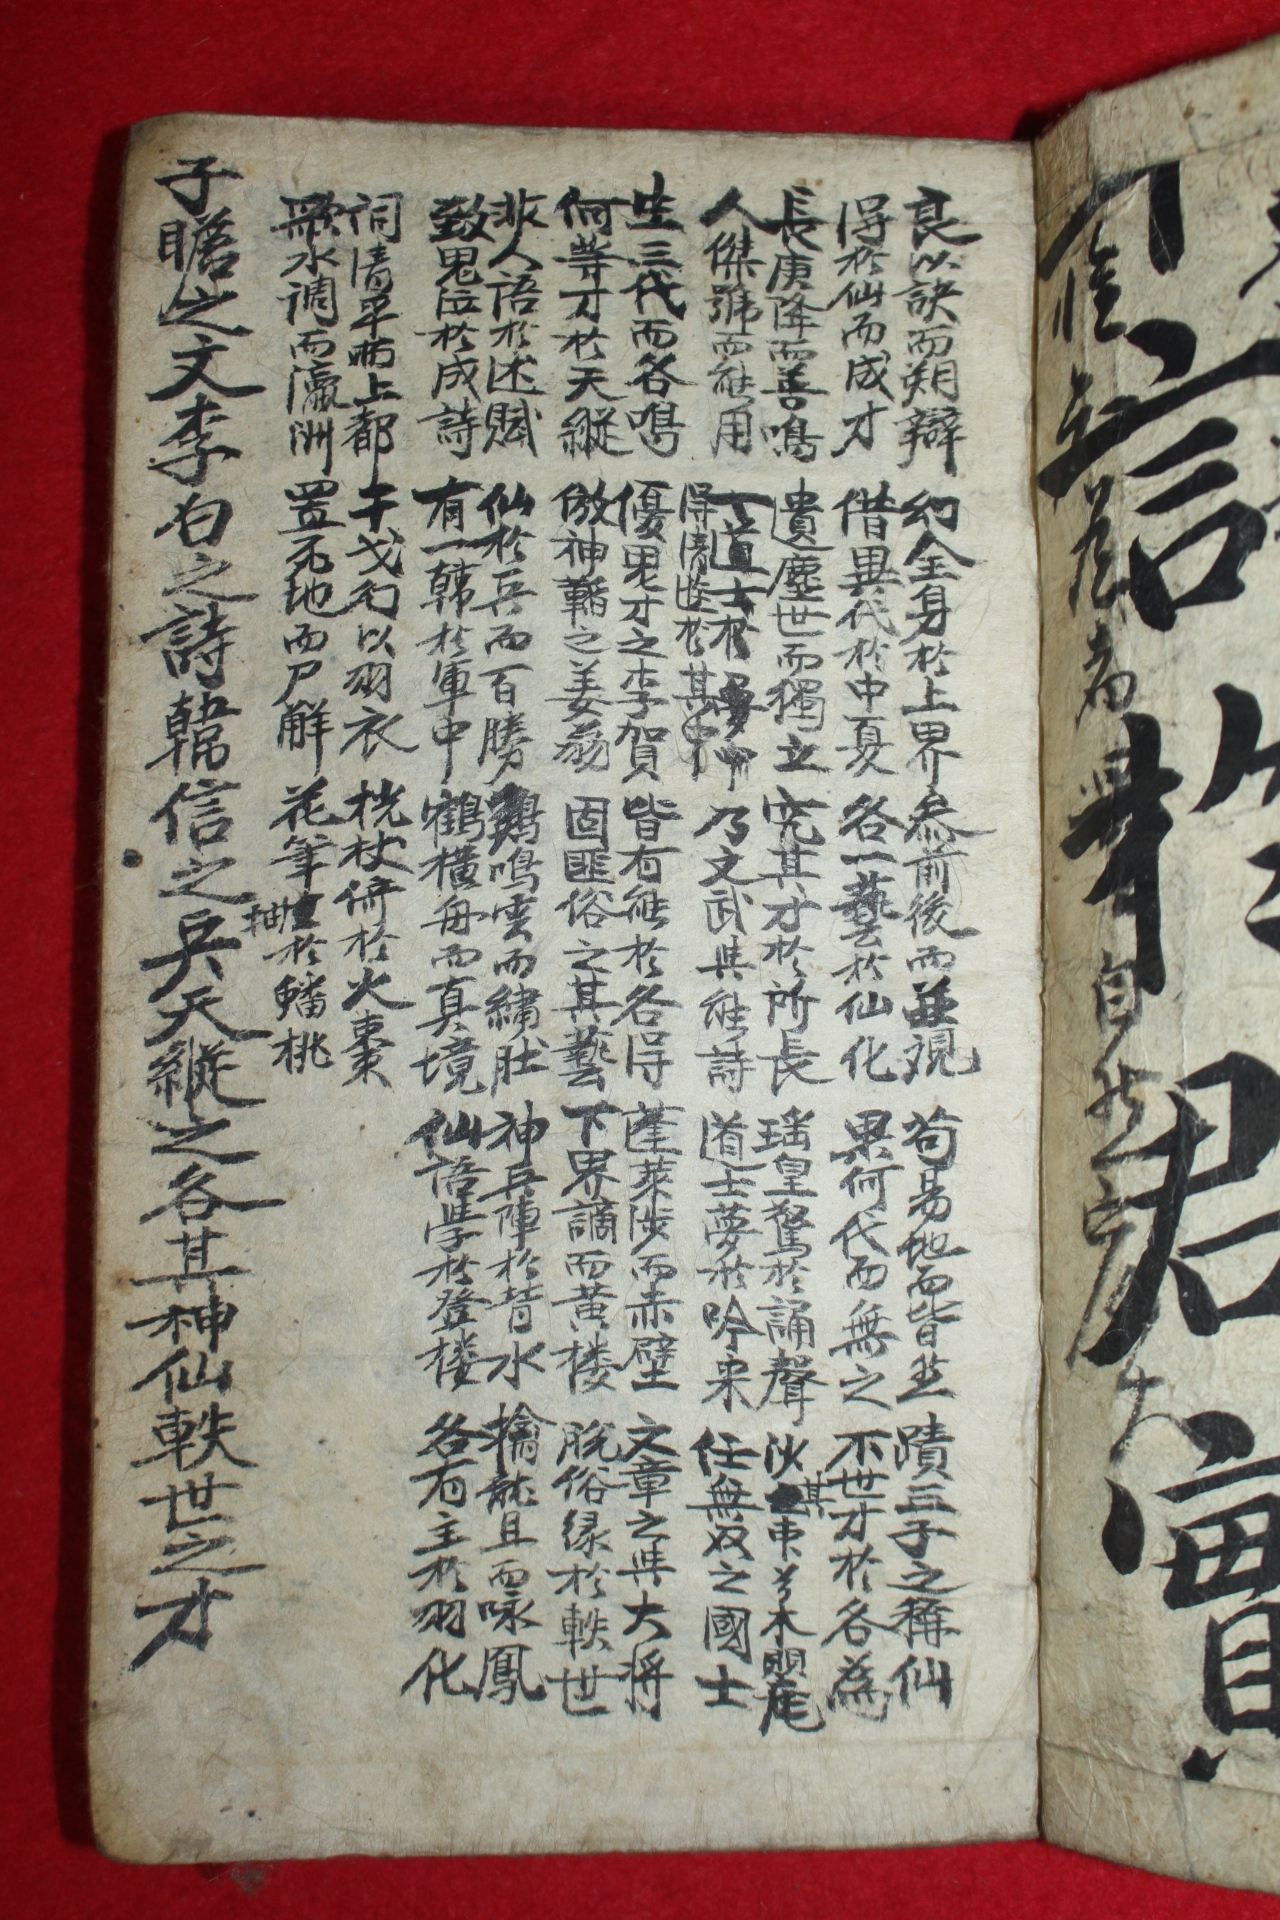 言生君實
自
良以訣而朔辯 幻全身於上界 叅前後而並觀 苟易地而皆並 蹟三子之稱仙
得於仙而成才 借異代於中夏 各一藝於仙化 果何代而無之 不世才於各爲
長庚降而善鳴 遺塵世而獨立 究其才於所長 瑤皇驚於誦聲 其
人傑號而能用 丁道士於夢中 乃文武與能詩 道士夢於吟來 任無奴之國士
得清遊於其中
生三代而各鳴 優鬼才之李賀 皆有能於各得 蓬萊涉而赤壁 文章之與大将
何等才於天縱 倣神韜之姜翁 固匪俗之其藝 下界謫而黃楼 脫俗緣於軼世
非人語於述賦 仙於兵而百勝 鷄鳴雲而繡肚 神兵陣於背水 擒龍且而咏鳳
致鬼泣於成詩 有一韓於軍中 鶴橫舟而真境 仙語學於登楼 各有主於羽化
詞清平上都 干戈匀以羽衣 杖倚於火棗
歌水调而瀛洲 置死地而尸解 花筆抽於蟠桃
子瞻之文李白之詩韓信之兵天縱之各其神仙軼世之才